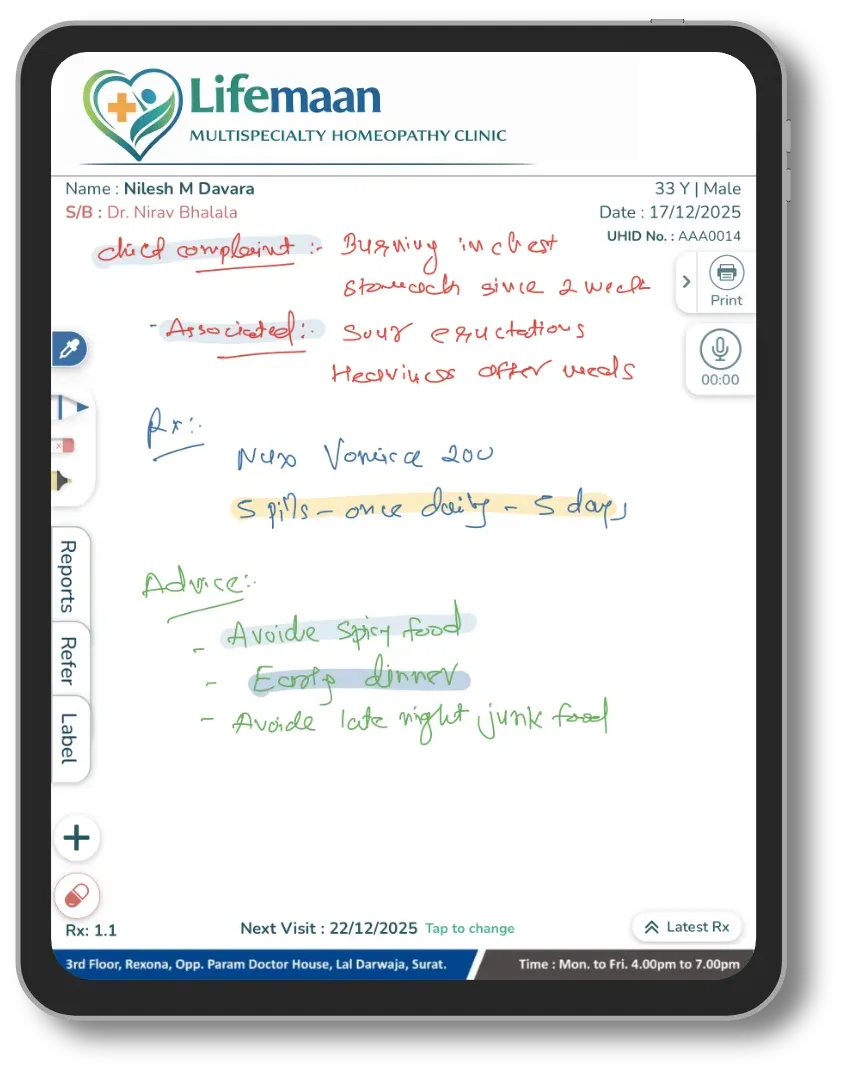 Lifemaan
MULTISPECIALTY HOMEOPATHY CLINIC
Name : Nilesh M Davara
33 Y | Male
S/B : Dr. Nirav Bhalala
Date : 17/12/2025
UHID No. : AAA0014
chief complaint :- Burning in chest
Stomach since 2 week
Print
- Associated :- Sour eructations
Heaviness after meals
00:00
Rx :-
Nux Vomica 200
5 pills - once daily - 5 days
Advice :-
- Avoide spicy food
- Early dinner
- Avoide late night junk food
Reports
Refer
Label
Rx: 1.1
Next Visit : 22/12/2025 Tap to change
Latest Rx
3rd Floor, Rexona, Opp. Param Doctor House, Lal Darwaja, Surat.
Time : Mon. to Fri. 4.00pm to 7.00pm